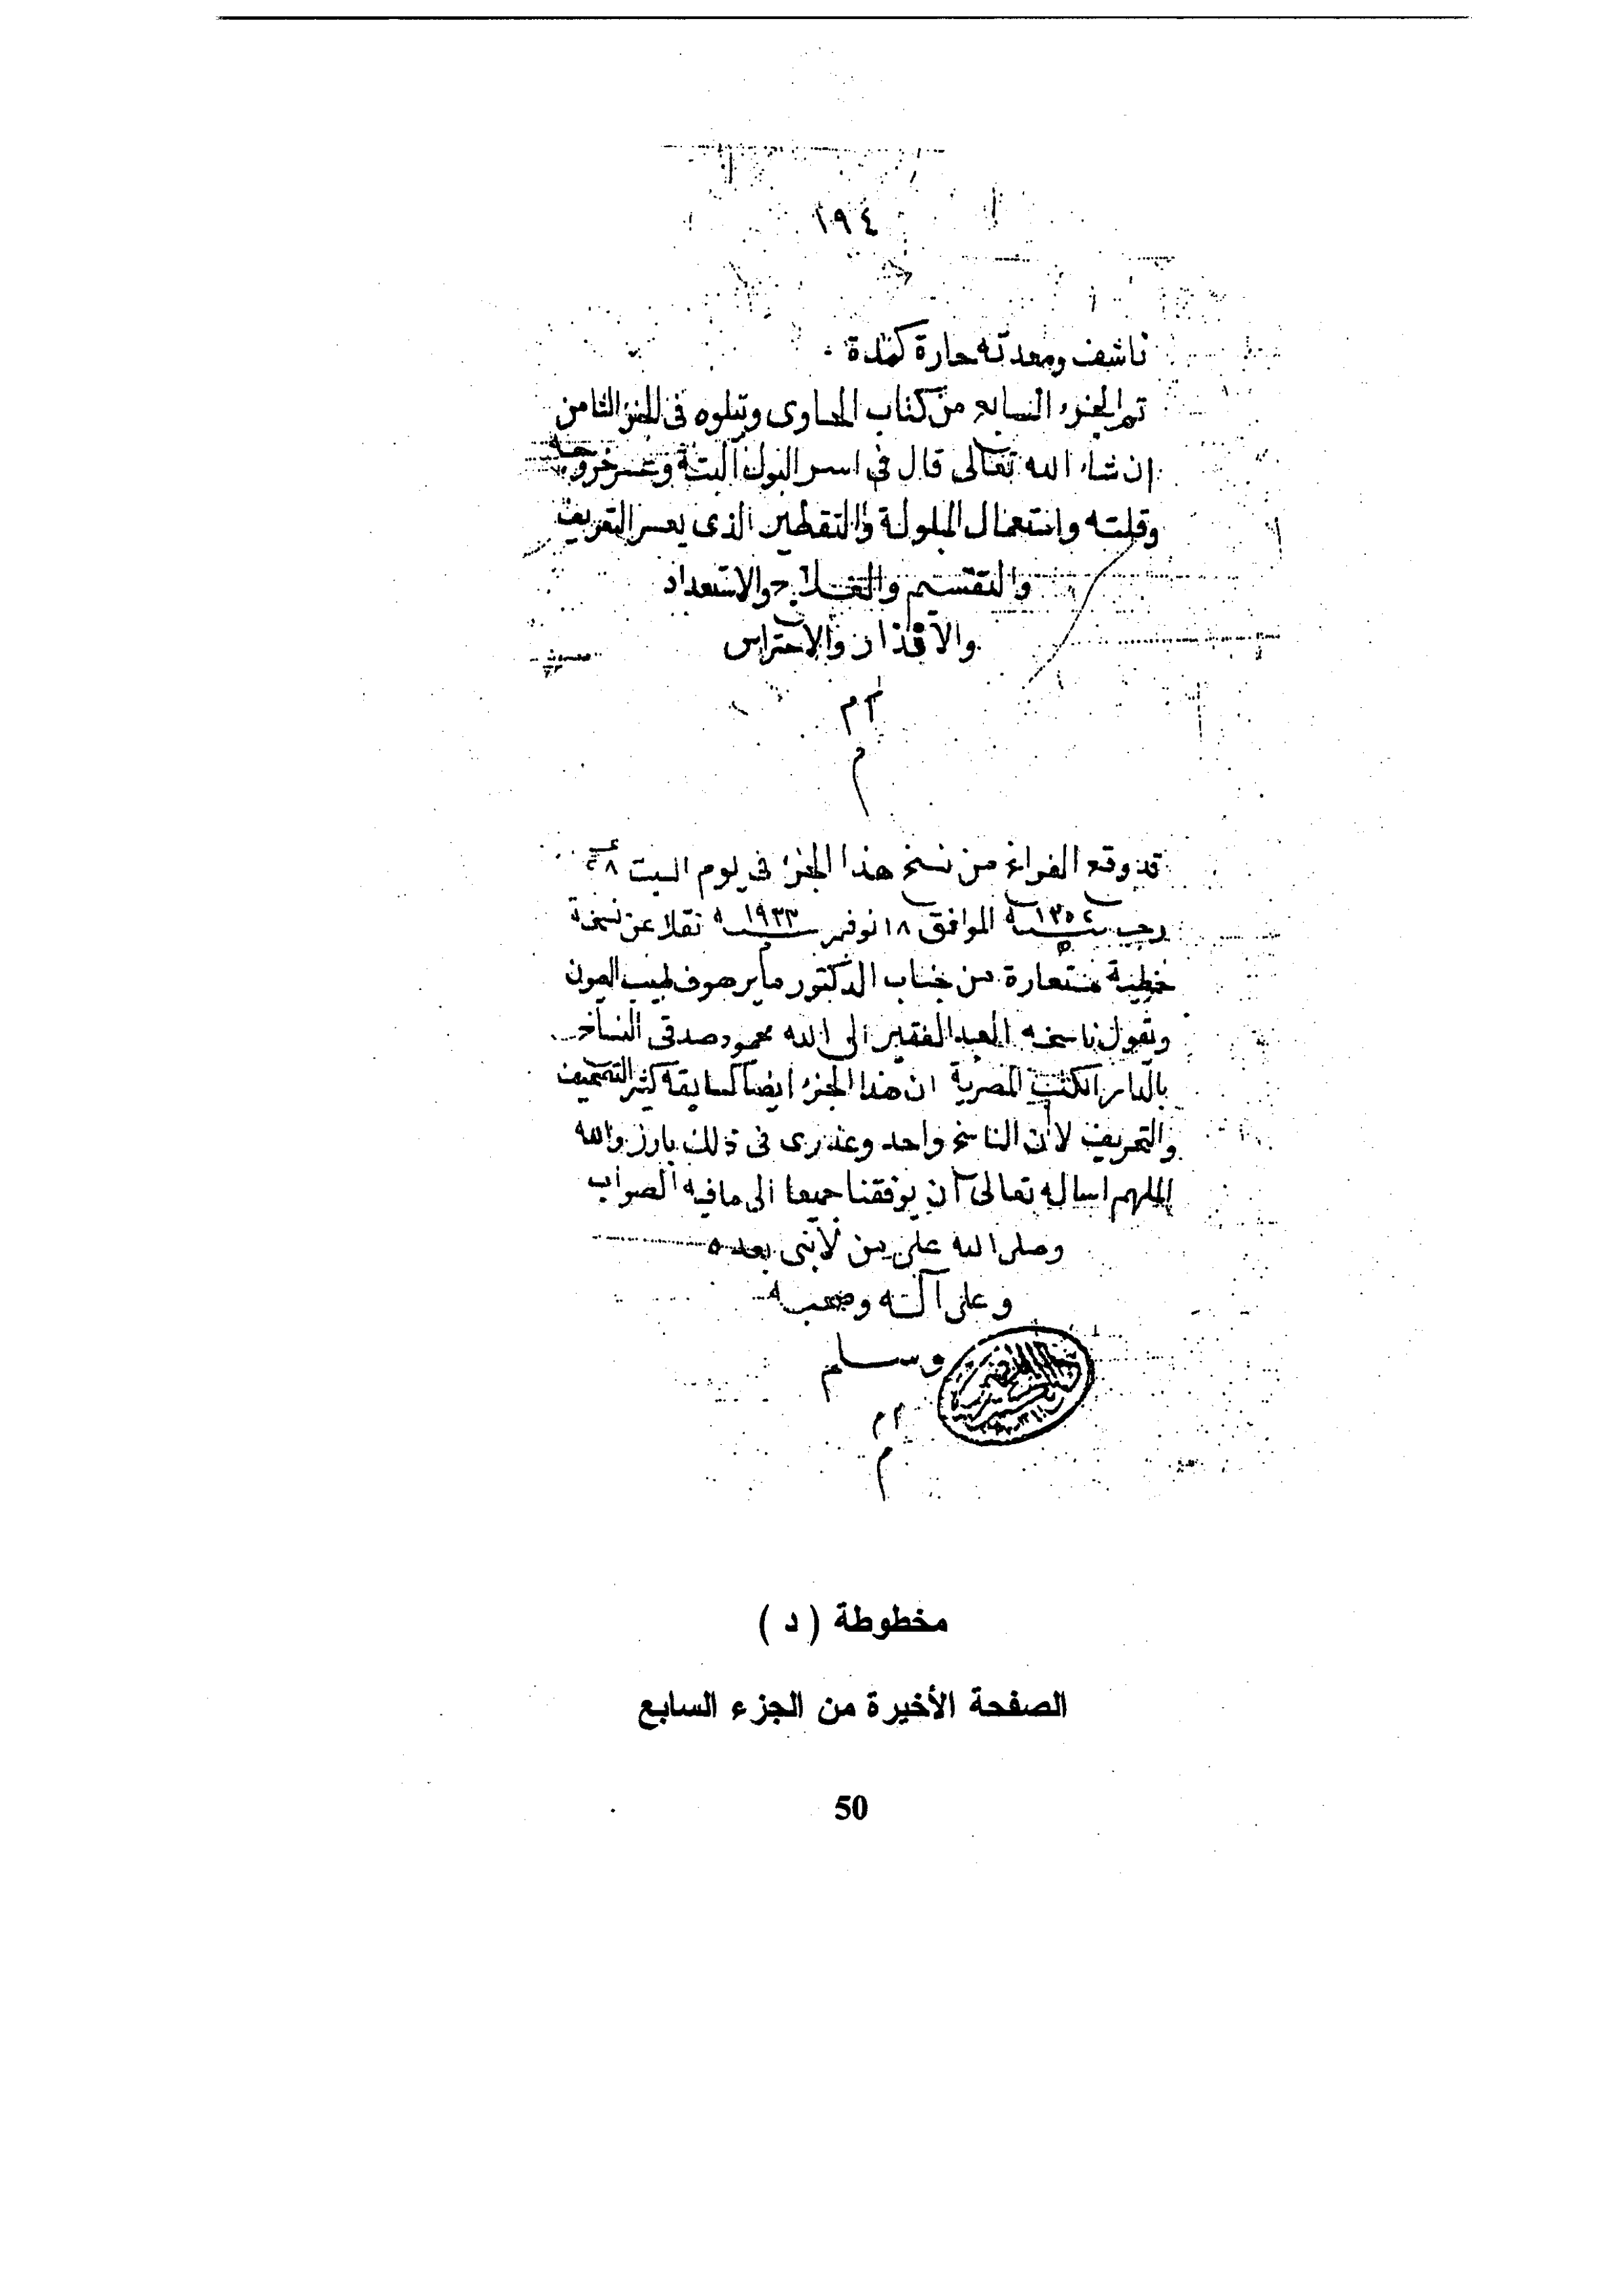 ١٩٤
ناشف ومعدته حارة كمدة
تم الجزء السابع من كتاب الحاوى ويتلوه فى الجزء الثامن
ان شاء الله تعالى قال فى اسر البول البتة وعسر خروجه
وقلته واستعمال المبولة والتقطير الذى يعسر التعريف
والتقسيم والعلاج والاستعداد
والانذار والاحتراس
ام
م
قد وقع الفراغ من نسخ هذا الجزء فى يوم السبت
رجب سنة ١٣٥٢ الموافق ١٨ نوفمبر سنة ١٩٣٣ نقلا عن نسخة
خطية مستعارة من جناب الدكتور مايرهوف طبيب العيون
ويقول ناسخه العبد الفقير الى الله محمود صدقى النساخ
بالدار الكتب المصرية ان هذا الجزء ايضا كسابقه كثير التصحيف
والتحريف لأن الناسخ واحد وعذرى فى ذلك بارز والله
الملهم اساله تعالى أن يوفقنا جميعا الى مافيه الصواب
وصلى الله على من لا نبى بعده
وعلى آله وصحبه
وسلم
ام
م
مخطوطة ( د )
الصفحة الأخيرة من الجزء السابع
50